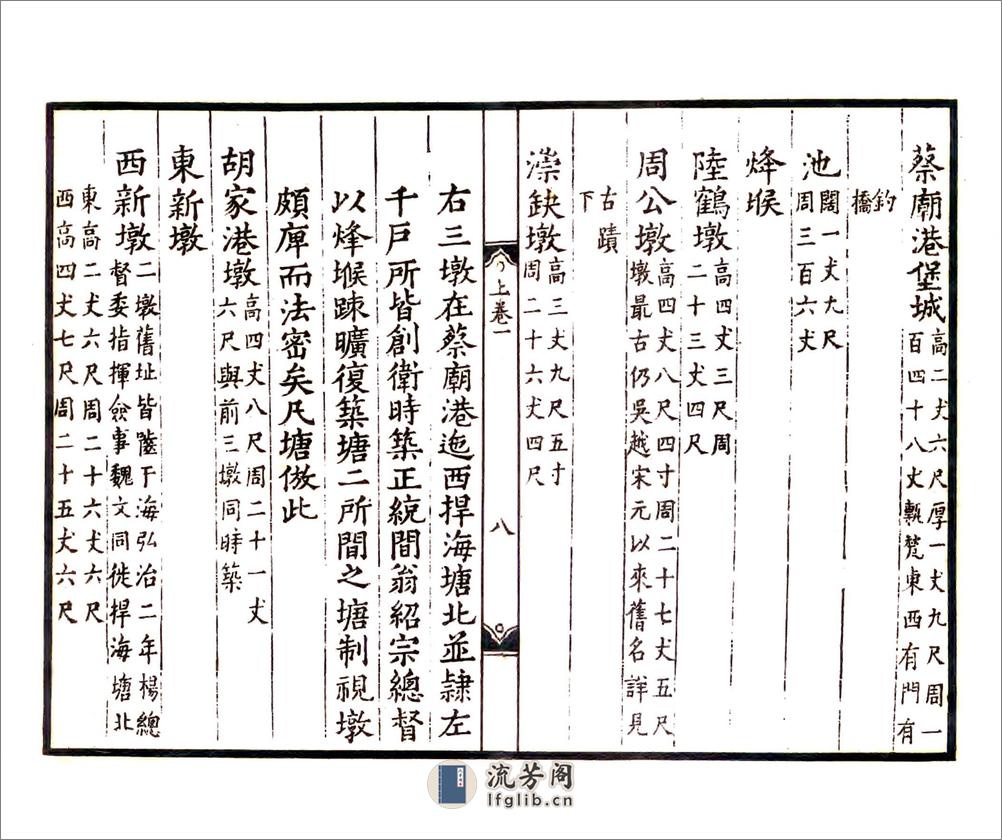 蔡廟港堡城高二丈六尺厚一丈九尺周一
百四十八丈甎甃東西有門有
釣
橋
池闊一丈九尺
周三百六丈
烽堠
陸鶴墩高四丈三尺周
二十三丈四尺
周公墩高四丈八尺四寸周二十七丈五尺
墩最古仍吳越宋元以來舊名詳見
古蹟
下
漴缺墩高三丈九尺五寸
周二十六丈四尺
上卷一
八
右三墩在蔡廟港迤西捍海塘北並隷左
千戶所皆創衛時築正統間翁紹宗總督
以烽堠踈曠復築塘二所間之塘制視墩
頗庳而法密矣凡塘倣此
胡家港墩高四丈八尺周二十一丈
六尺與前三墩同時築
東新墩
西新墩二墩舊址皆墮于海弘治二年楊總
督委指揮僉事魏文同徙捍海塘北
東高二丈六尺周二十六丈六尺
西高四丈七尺周二十五丈六尺
流芳阁
lfglib.cn